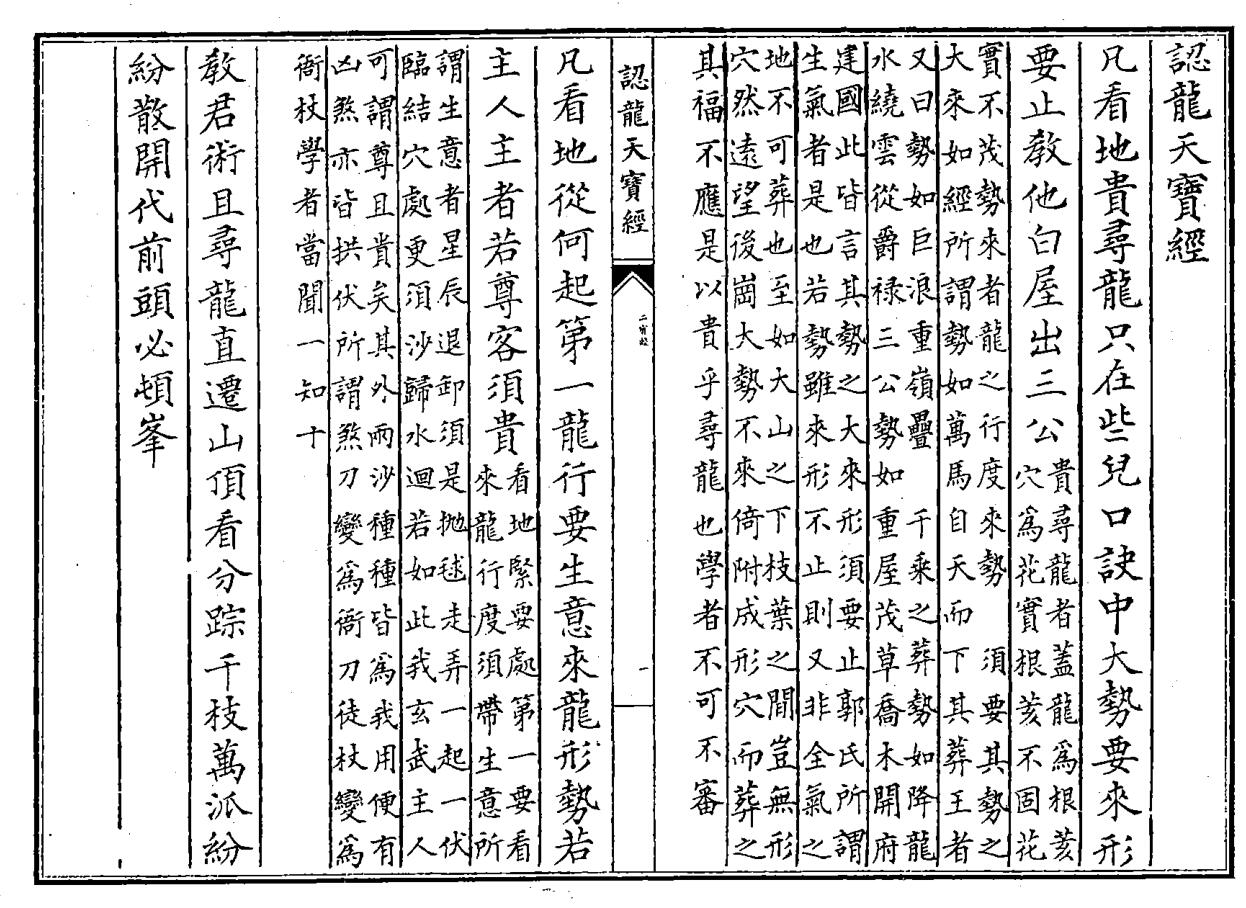 認龍天寶經
凡看地貴尋龍只在些兒口訣中大勢要來形
要止教他白屋出三公
貴尋龍者蓋龍爲根荄
穴爲花實根荄不固花
實不茂勢來者龍之行度來勢 須要其勢之
大來如經所謂勢如萬馬自天而下其葬王者
又曰勢如巨浪重嶺疊 千乘之葬勢如降龍
水繞雲從爵祿三公勢如重屋茂草喬木開府
建國此皆言其勢之大來形須要止郭氏所謂
生氣者是也若勢雖來形不止則又非全氣之
地不可葬也至如大山之下枝葉之間豈無形
穴然遠望後崗大勢不來倚附成形穴而葬之
其福不應是以貴乎尋龍也學者不可不審
認龍天寶經
一
凡看地從何起第一龍行要生意來龍形勢若
主人主者若尊客須貴
看地緊要處第一要看
來龍行度須帶生意所
謂生意者星辰退卸須是抛毬走弄一起一伏
臨結穴處更須沙歸水迴若如此我玄武主人
可謂尊且貴矣其外兩沙種種皆爲我用便有
凶煞亦皆拱伏所謂煞刀變爲衙刀徒杖變爲
衙杖學者當聞一知十
教君術且尋龍直遷山頂看分踪千枝萬派紛
紛散開代前頭必頓峯